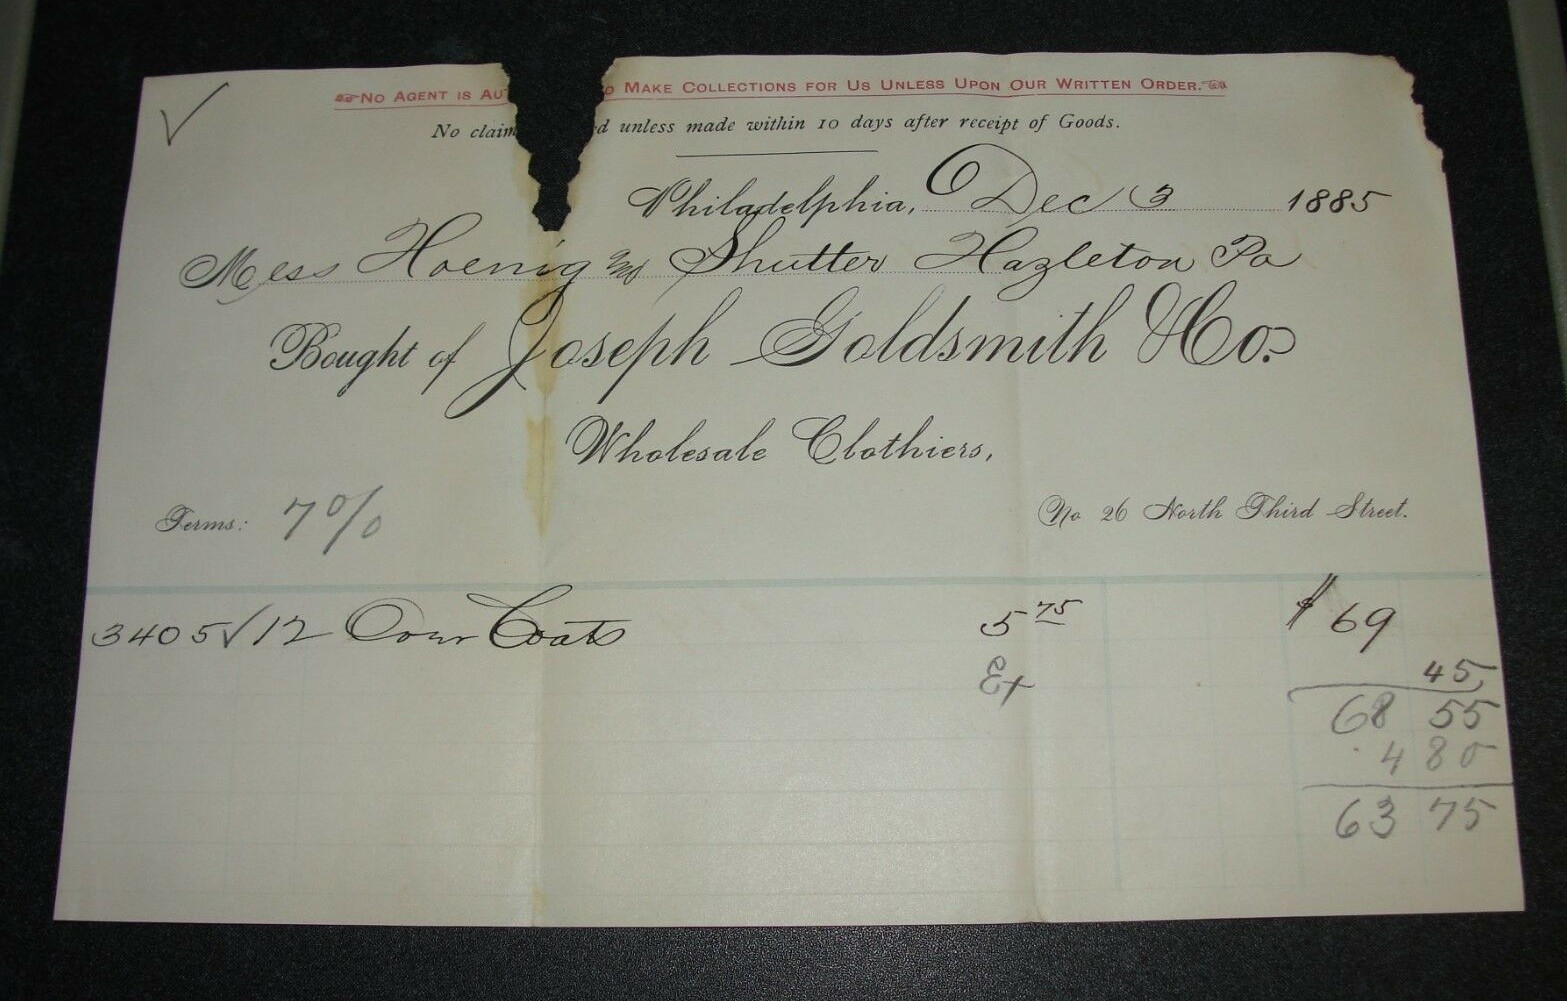 No Agent is Au o Make Collections for Us Unless Upon Our Written Order.
No claim d unless made within 10 days after receipt of Goods.
Philadelphia, Dec 3 1885
Mess Hoenig and Shutter Hazleton Pa
Bought of Joseph Goldsmith & Co.
Wholesale Clothiers,
Terms: 7% No 26 North Third Street.
3405 ✓ 12 Coats 5 75 $ 69
Ex 45
68 55
4 80
63 75